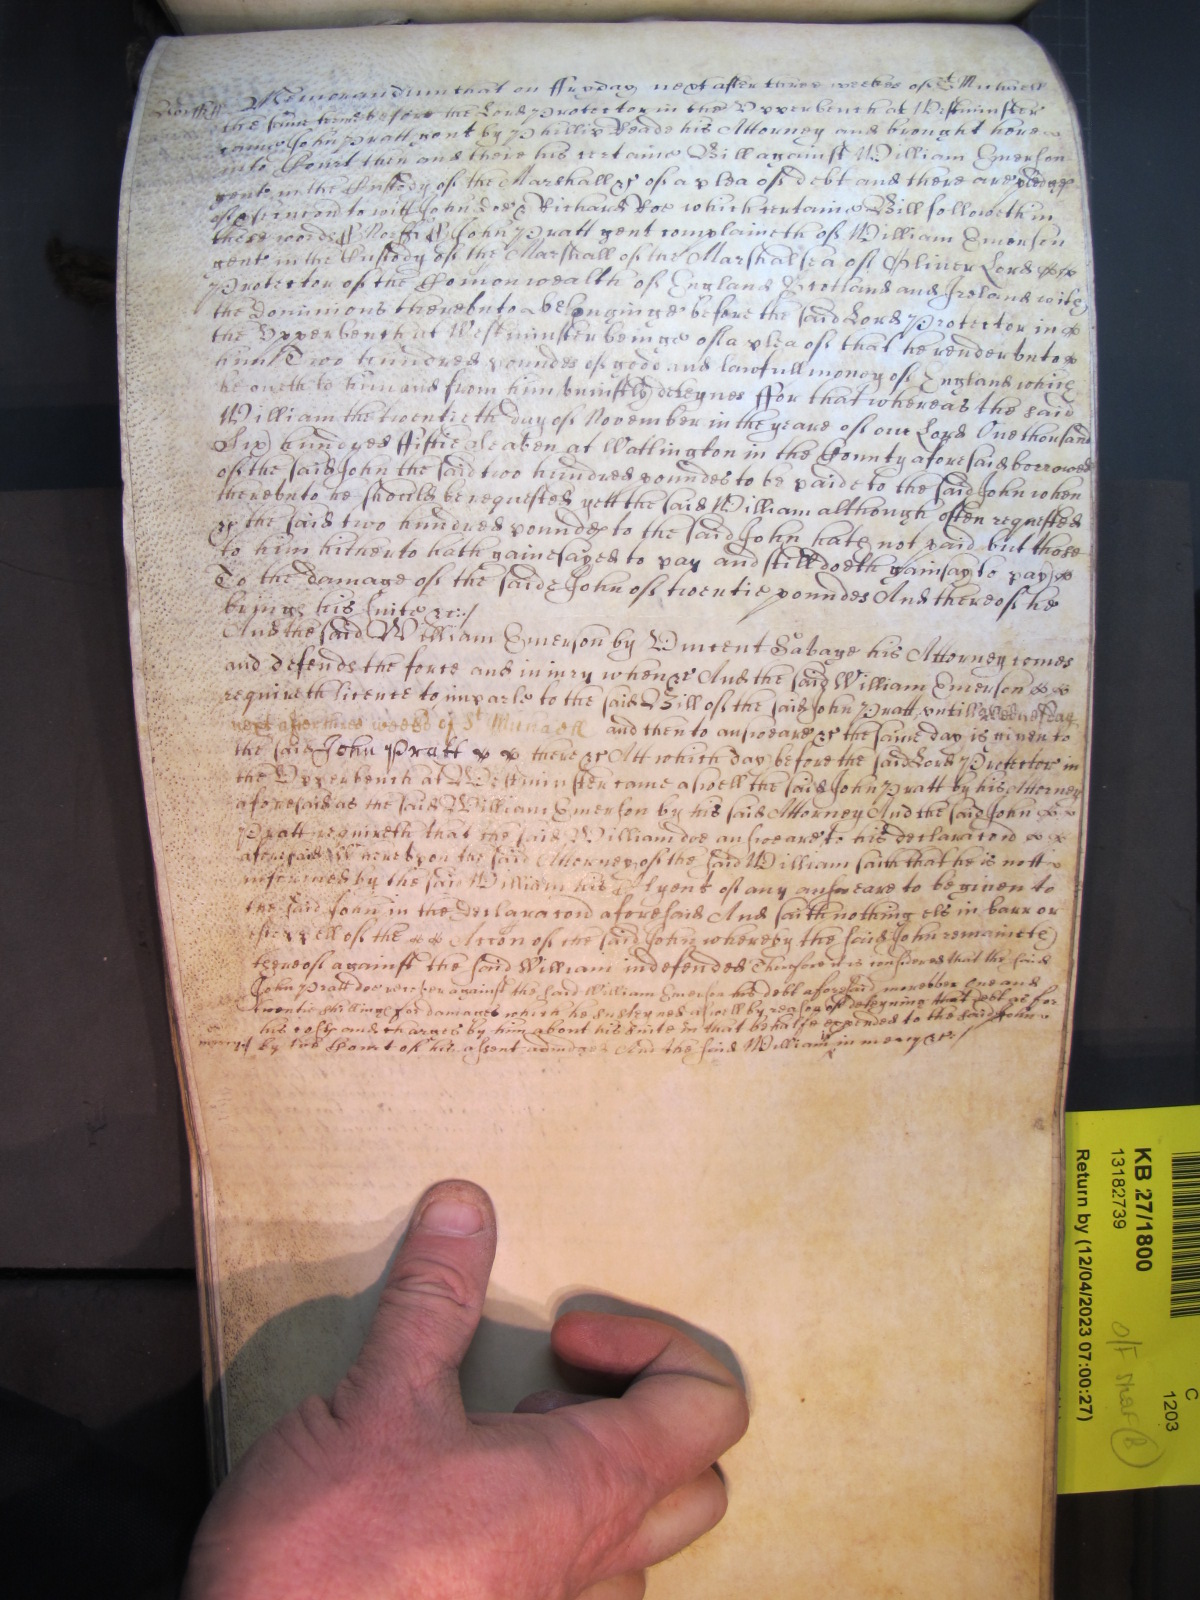 Norff ss Memorandum that on ffryday next after three weekes of St Michaell
the same terme before the Lord Protector in the Vpper bench at Westminster
came John Pratt gent by Phillip Reade his Attorney and brought here
into Court then and there his certaine Bill against William Emerson
gent in the Custody of the Marshall &c of a plea of debt and there are pledges
of prosecucon to witt John Doe & Richard Roe which certaine Bill followeth in
these words ss Norff ss John Pratt gent complaineth of William Emerson
gent in the Custody of the Marshall of the Marshalsea of Oliver Lord
Protector of the Comonwealth of England Scotland and Ireland with
the dominions therevnto belonginge before the said Lord Protector in
the Vpper bench at Westminster beinge of a plea of that he render vnto
him Two hundred poundes of good and lawfull money of England which
he oweth to him and from him vniustly deteynes ffor that whereas the said
William the twentieth day of November in the yeare of our Lord One thousand
Six hundred ffiftie Seaven at Watlington in the County aforesaid borrowed
of the said John the said two hundred poundes to be paide to the said John when
therevnto he should be requested yett the said William although often requested
&c the said two hundred poundes to the said John hath not paid but those
to him hitherto hath gainesayed to pay and still doeth gainsay to pay
To the damage of the saide John of twentie poundes And thereof he
brings his suite &c
And the said William Emerson by Vincent Sabage his Attorney comes
and defends the force and iniury when &c And the said William Emerson
requireth licence to imparle to the said Bill of the said John Pratt vntill Wednesday
next after three weekes of St Michaell and then to answeare &c the same day is given to
the said John Pratt there &c Att which day before the said Lord Protector in
the Vpper bench at Westminster came aswell the said John Pratt by his Attorney
aforesaid as the said William Emerson by his said Attorney And the said John
Pratt requireth that the said William doe answeare to his declaracon
aforesaid Wherevpon the said Attorney of the said William saith that he is nott
informed by the said William his Clyent of any answeare to be given to
the said John in the declaracond aforesaid And saith nothing els in barr or
of the Accon of the said John whereby the said John remaineth
thereof against the said William indefended Therefore it is considered that the said
John Pratt doe recover against the said William Emerson his debt aforesaid and
twentie shillings for damages which he susteyned aswell by reason of deteyning that debt as for
his costs and charges by him about his suite in that behalfe expended to the said John
by the Court of his assent adiudged And the said William in mercy &c
mercy
KB 27/1800
13182739
Return by (12/04/2023 07:00:27)
C
1203